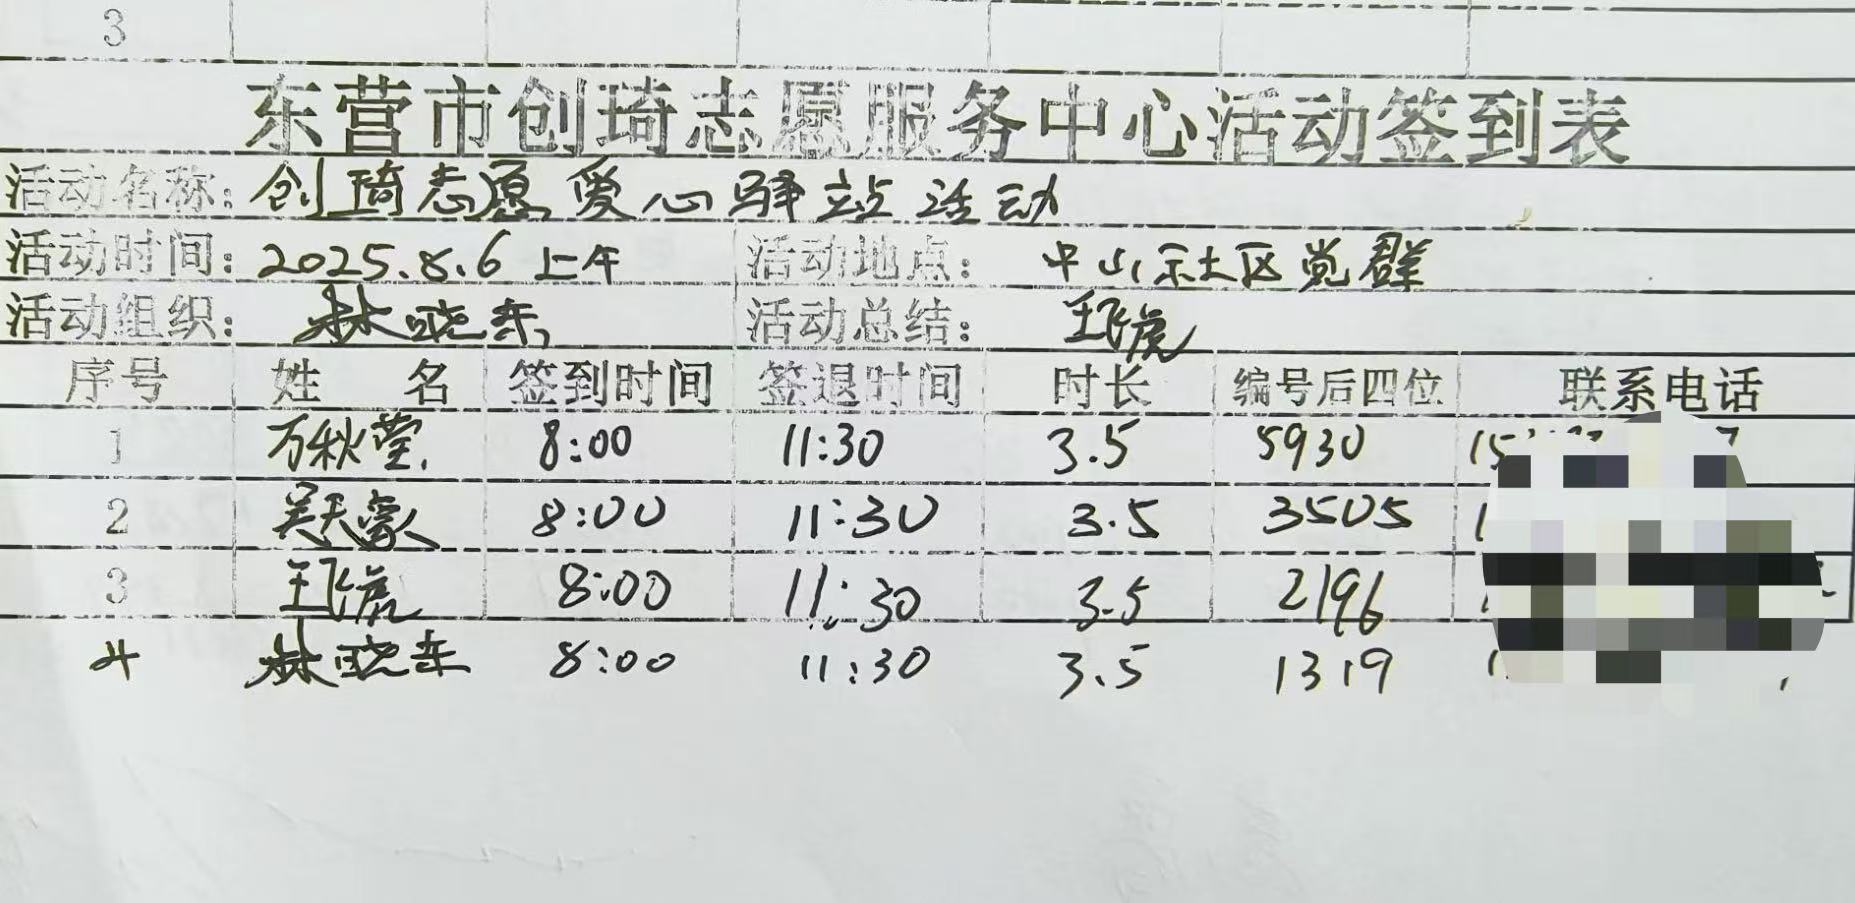 3
东营市创琦志愿服务中心活动签到表
活动名称：创琦志愿爱心驿站活动
活动时间：2025.8.6 上午 活动地点：中山社区党群
活动组织：林晓东 活动总结：王飞虎
序号 姓 名 签到时间 签退时间 时长 编号后四位 联系电话
1 万秋莹 8:00 11:30 3.5 5930 15
2 吴天豪 8:00 11:30 3.5 3505 1
3 王飞虎 8:00 11:30 3.5 2196
4 林晓东 8:00 11:30 3.5 1319